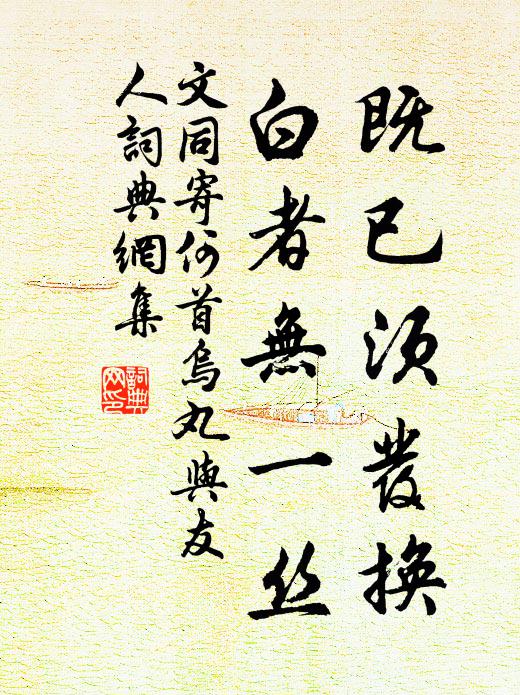 既已須發換
白者無一丝
文同寄何首烏丸與友
人詞典網集
詞典
网印